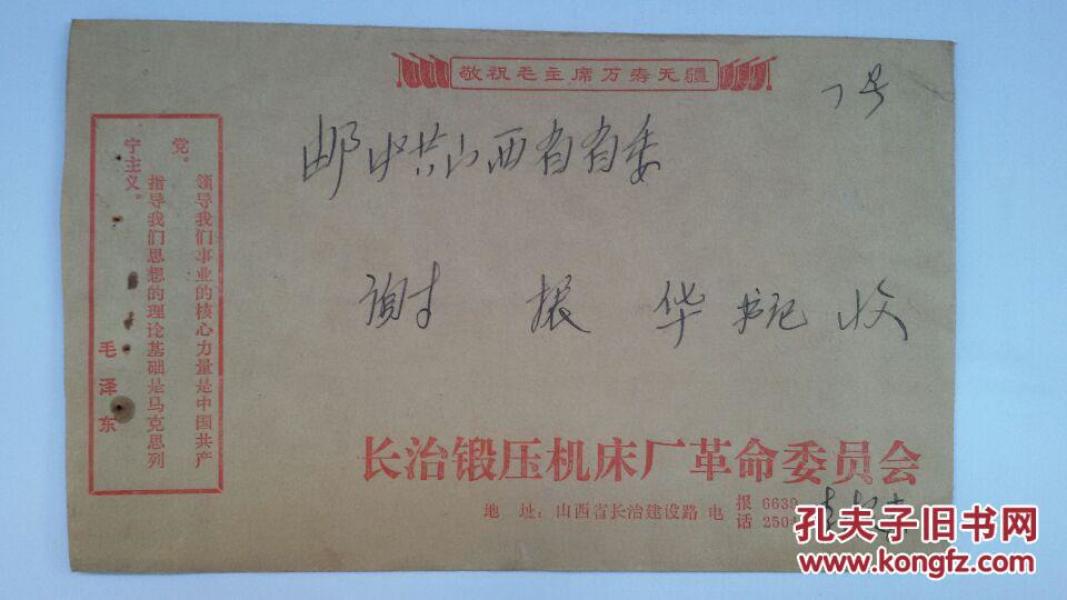 敬祝毛主席万寿无疆
7号
邮中共山西省省委
谢振华书记收
领导我们事业的核心力量是中国共产
党。
指导我们思想的理论基础是马克思列
宁主义。
毛泽东
长治锻压机床厂革命委员会
地 址：山西省长治建设路 电 报 6639
话 250
孔夫子旧书网
kongfz.com